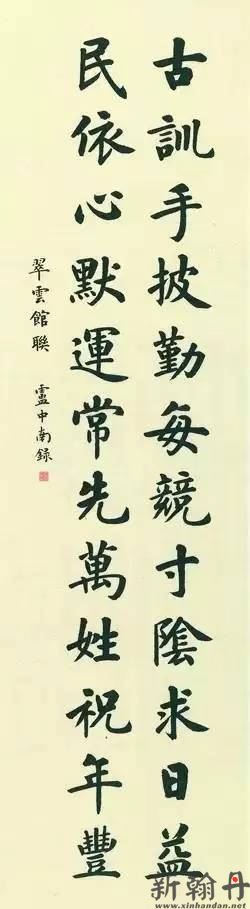 古訓手披勤每競寸陰求日益
民依心默運常先萬姓祝年豐
翠雲館聯 盧中南錄
新翰丹
www.xinhandan.net